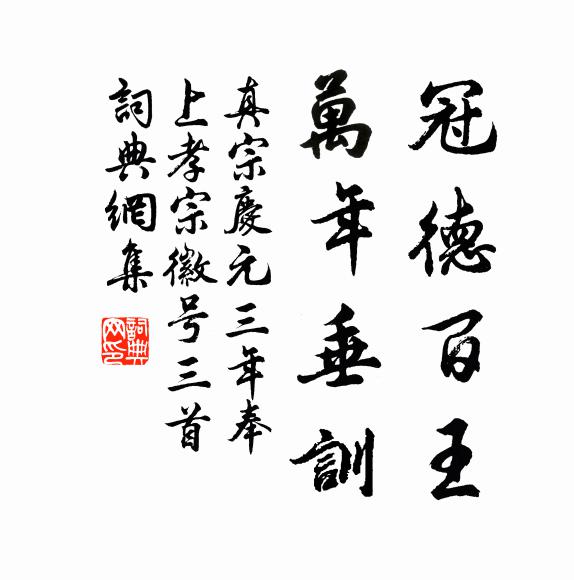 冠德百王
萬年垂訓
真宗慶元三年奉
上孝宗徽号三首
詞典網集
詞典
网印